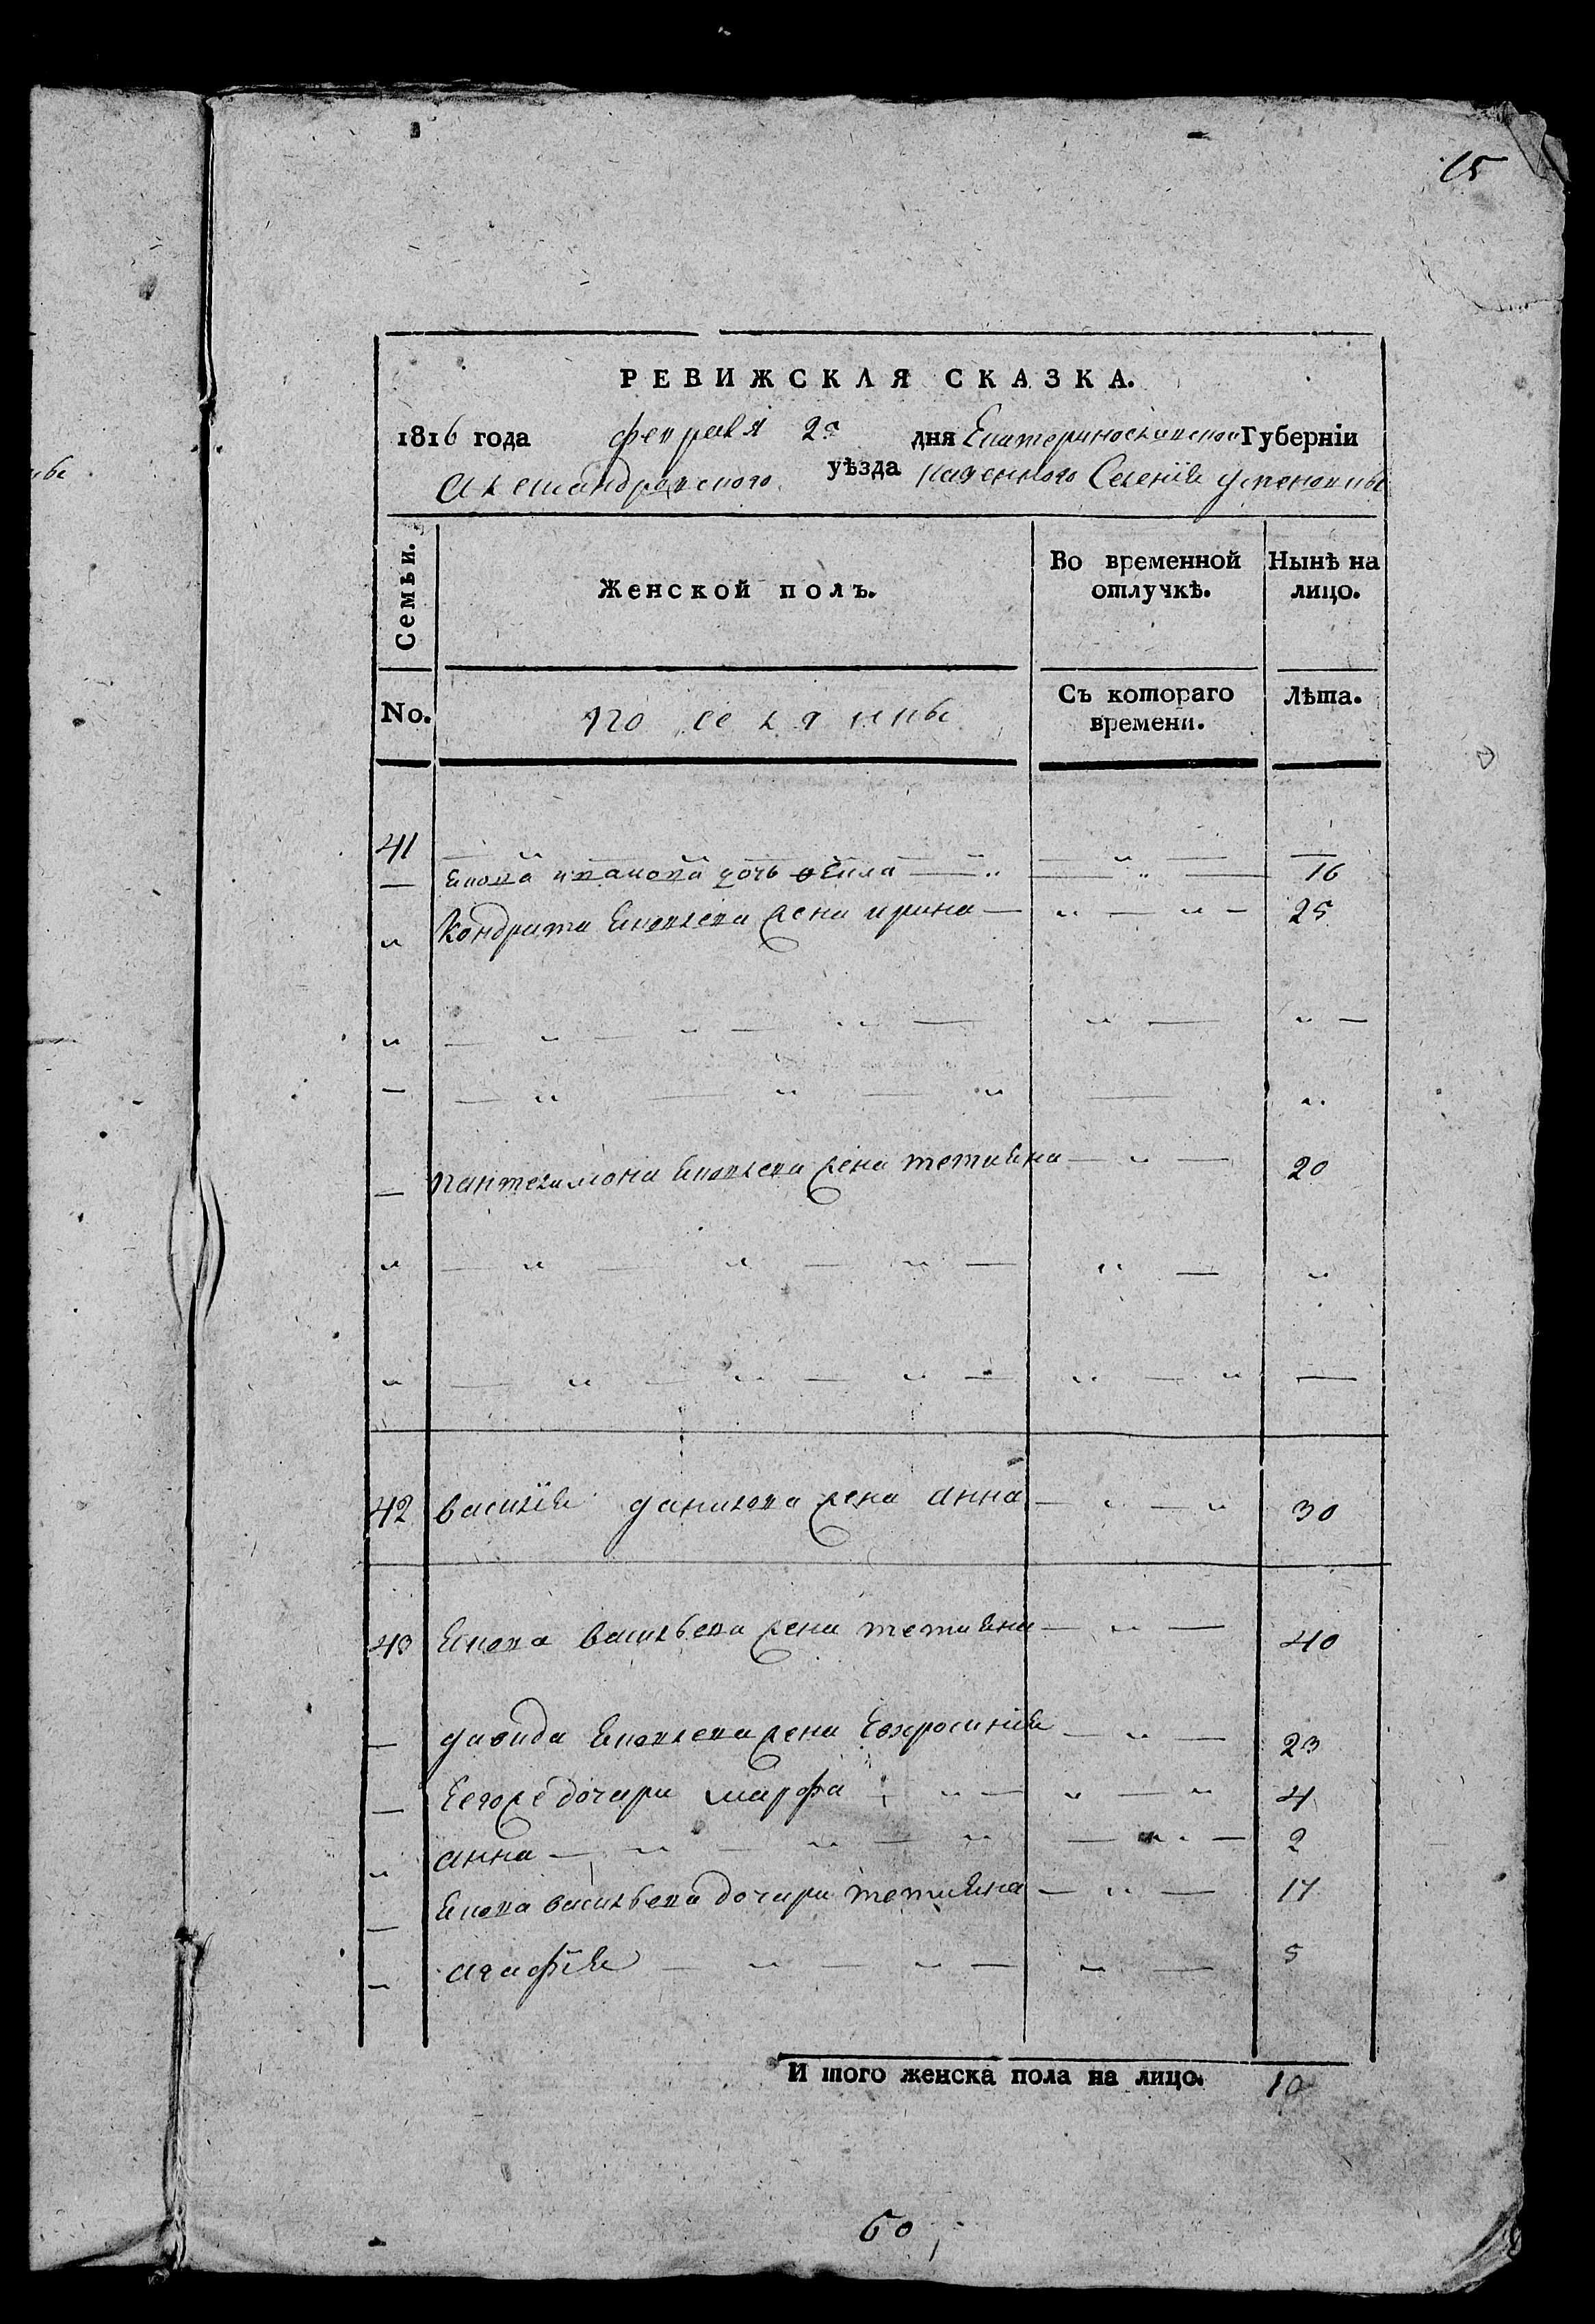 15
РЕВИЖСКАЯ СКАЗКА.
1816 года февраля 2го дня Екатеринославской Губернїи
Александровского уѣзда казенного Селенїя
Семьи. Женской полъ. Во временной отлучкѣ. Нынѣ на лицо.
No. поселянны Съ котораго времени. Лѣта.
41
дочь 16
Кондрата Яковлева жена ирина 25
пантелимона Яковлева жена тетияна 20
42 василїя данилова жена анна 30
43 Якова васильева жена тетияна 40
давида Яковлева жена Евфросинїя 23
Его же дочери марфа 4
анна 2
Якова васильева дочери тетияна 17
агафїя 5
И того женска пола на лицо. 10
60